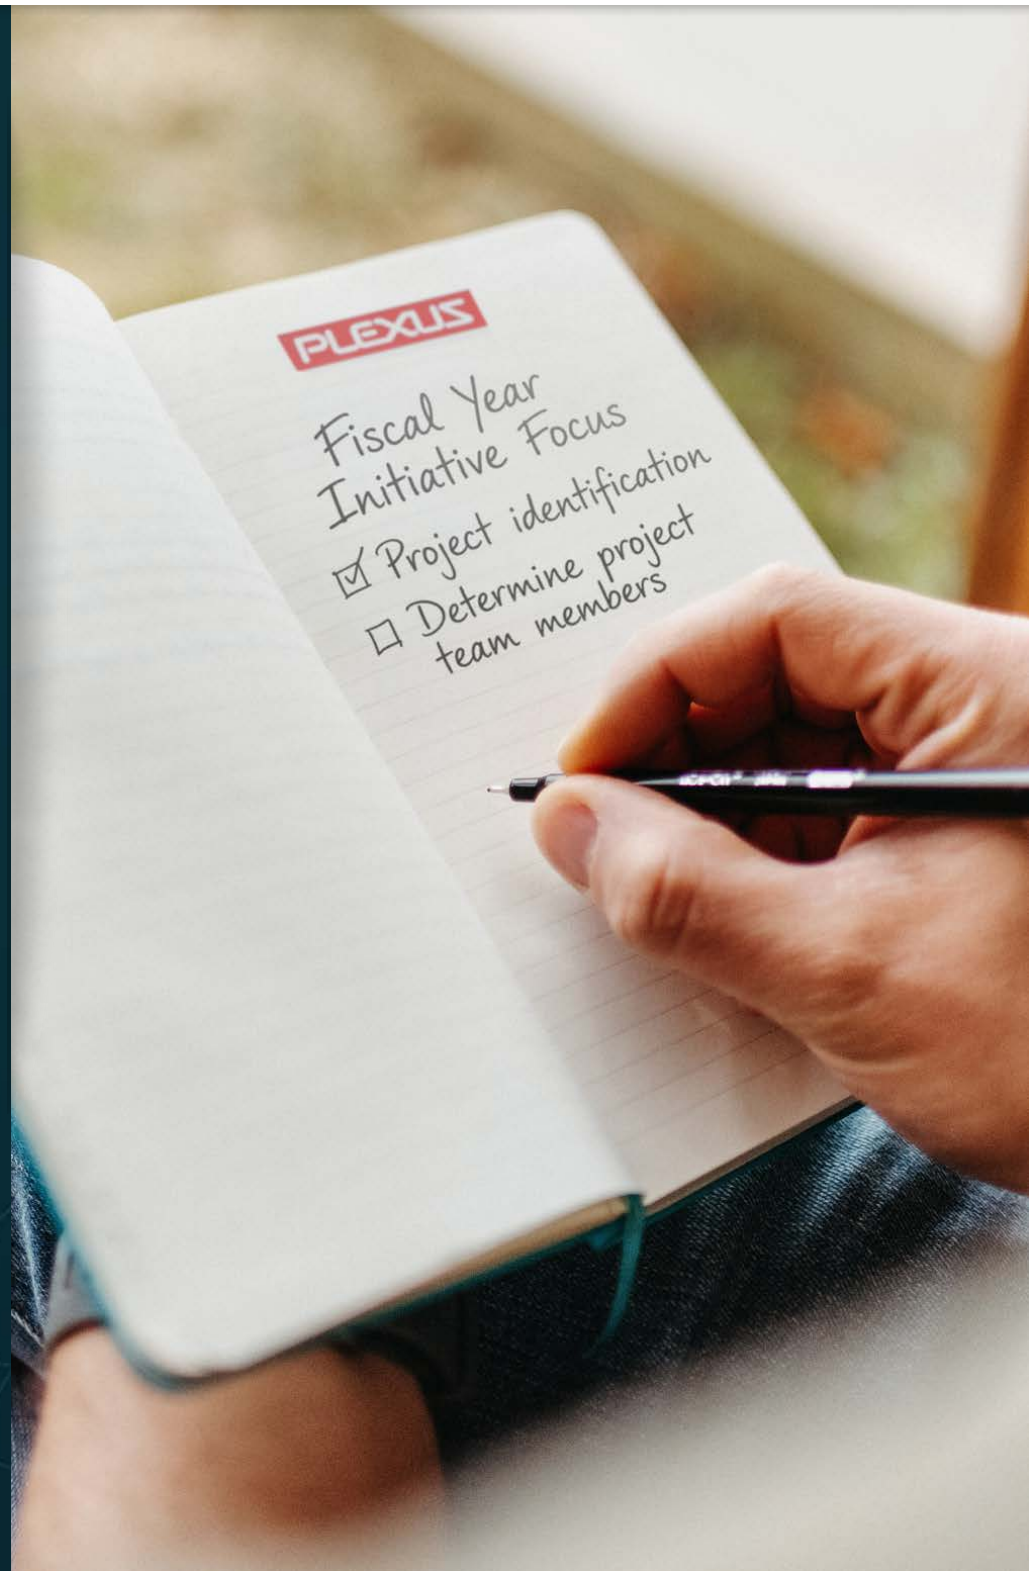 PLEXUS
Fiscal Year
Initiative Focus
☑ Project identification
☐ Determine project
team members